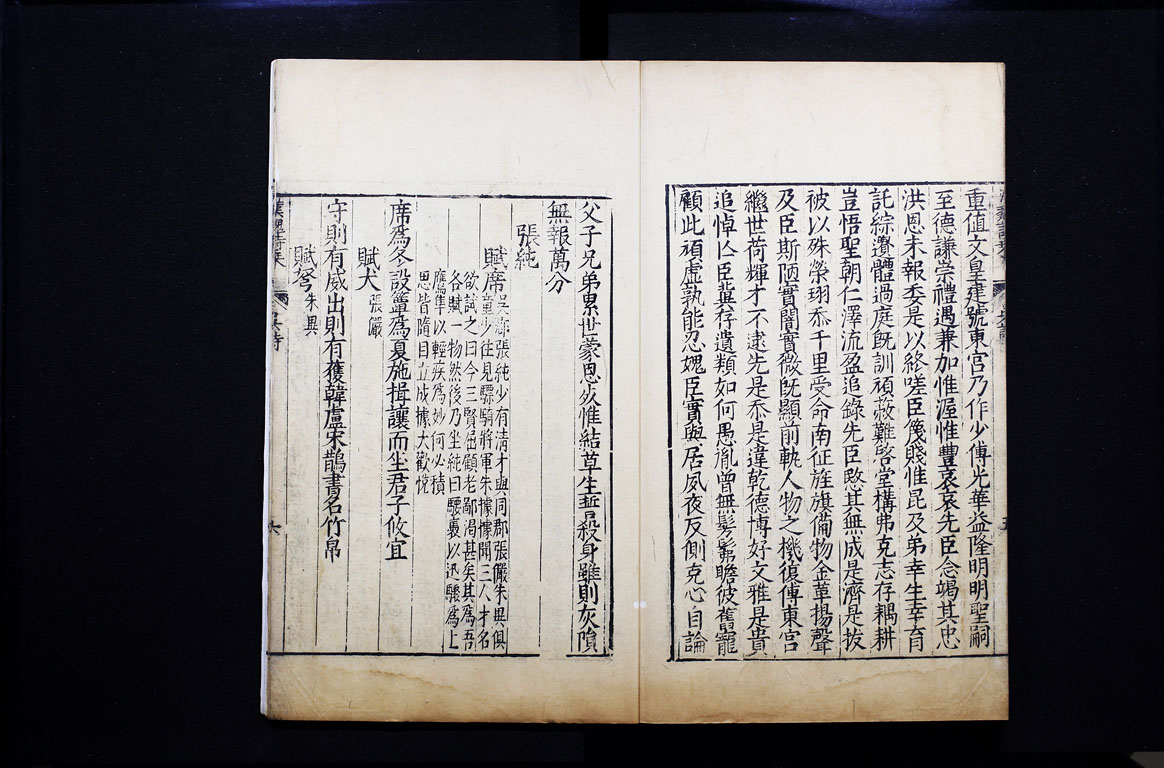 重值文皇建號東宮乃作少傅光華益隆明明聖嗣
至德謙崇禮遇兼加惟渥惟豐哀哀先臣念竭其忠
洪恩未報委是以終嗟臣篾賤惟昆及弟幸生幸育
託綜遺體過庭既訓頑蔽難啓堂構弗克志存耦耕
豈悟聖朝仁澤流盈追錄先臣愍其無成是濟是拔
被以殊榮珝忝千里受命南征旌旗備物金革揚聲
及臣斯陋實闇實微既顯前軌人物之機復傅東宮
繼世荷輝才不逮先是忝是違乾德博好文雅是貴
追悼亾臣冀存遺類如何愚胤曾無髣髴瞻彼舊寵
顧此頑虛孰能忍媿臣實與居夙夜反側克心自論
父子兄弟累世蒙恩死惟結草生誓殺身雖則灰隕
無報萬分
張純
賦席
吳郡張純少有清才與同郡張儼朱異俱
童少往見驃騎將軍朱據據聞三人才名
欲試之曰今三賢屈顧老鄙渴甚矣其為吾
各賦一物然後乃坐純曰騕裹以迅驟為上
鷹隼以輕疾為妙何必積
思皆隋目立成據大歡悅
席為冬設簟為夏施揖讓而坐君子攸宜
賦犬 張儼
守則有威出則有獲韓盧宋鵲書名竹帛
賦弩 朱異
漢魏詩集
吳詩
六